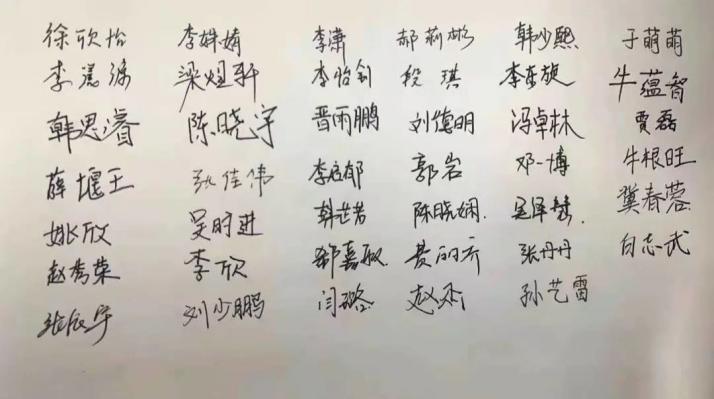 徐欣怡 李姝婧 李潇 郝莉彬 韩少熙 于萌萌
梁煜轩 李怡钊 段琪 李东旋 牛蕴智
韩思睿 陈晓宇 晋雨鹏 刘德明 冯卓林 贾磊
薛堰王 张佳伟 李启郁 郭岩 邓一博 牛根旺
姚欣 吴时进 韩芷若 陈晓娴 冀春蓉
赵秀荣 李欣 郝嘉敏 张丹丹 白志武
张宸宇 刘少鹏 闫璐 赵杰 孙艺雷